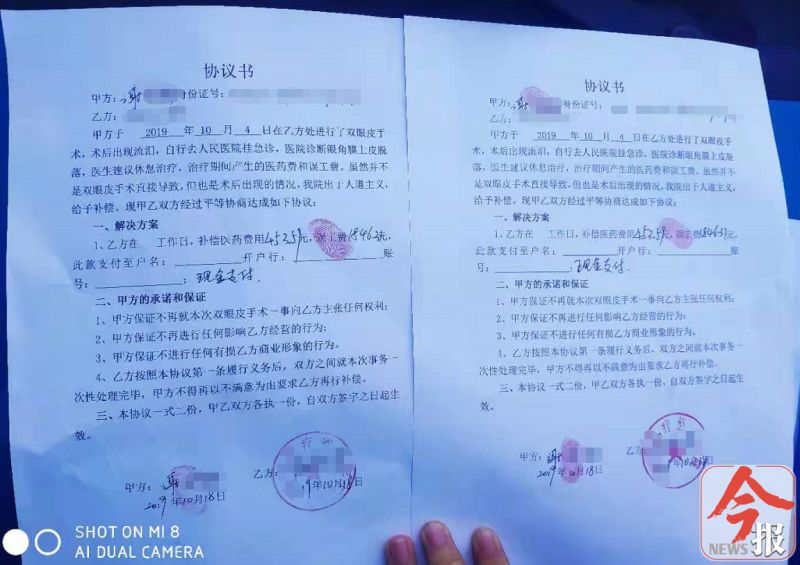 协议书
甲方：谢 身份证号：
乙方：
甲方于 2019 年 10 月 4 日在乙方处进行了双眼皮手
术，术后出现流泪，自行去人民医院挂急诊，医院诊断眼角膜上皮脱
落，医生建议休息治疗，治疗期间产生的医药费和误工费。虽然并不
是双眼皮手术直接导致，但也是术后出现的情况，我院出于人道主义，
给予补偿。现甲乙双方经过平等协商达成如下协议：
一、解决方案
1、乙方在 工作日，补偿医药费用453.59元，误工费 元，
此款支付至户名：__________开户行：__________账
号：__________；现金支付.
二、甲方的承诺和保证
1、甲方保证不再就本次双眼皮手术一事向乙方主张任何权利；
2、甲方保证不再进行任何影响乙方经营的行为；
3、甲方保证不进行任何有损乙方商业形象的行为。
4、乙方按照本协议第一条履行义务后，双方之间就本次事务一
次性处理完毕，甲方不得再以不满意为由要求乙方再行补偿。
三、本协议一式二份，甲乙双方各执一份，自双方签字之日起生
效。
甲方：谢 乙方：
2019年10月18日 19年10月18日
协议书
甲方：谢 身份证号：
乙方：
甲方于 2019 年 10 月 4 日在乙方处进行了双眼皮手
术，术后出现流泪，自行去人民医院挂急诊，医院诊断眼角膜上皮脱
落，医生建议休息治疗，治疗期间产生的医药费和误工费。虽然并不
是双眼皮手术直接导致，但也是术后出现的情况，我院出于人道主义，
给予补偿。现甲乙双方经过平等协商达成如下协议：
一、解决方案
1、乙方在 工作日，补偿医药费用453.59元，误工费 元，
此款支付至户名：__________开户行：__________账
号：__________；现金支付.
二、甲方的承诺和保证
1、甲方保证不再就本次双眼皮手术一事向乙方主张任何权利；
2、甲方保证不再进行任何影响乙方经营的行为；
3、甲方保证不进行任何有损乙方商业形象的行为。
4、乙方按照本协议第一条履行义务后，双方之间就本次事务一
次性处理完毕，甲方不得再以不满意为由要求乙方再行补偿。
三、本协议一式二份，甲乙双方各执一份，自双方签字之日起生
效。
甲方：谢 乙方：
2019年10月18日
SHOT ON MI 8
AI DUAL CAMERA
今报
NEWS